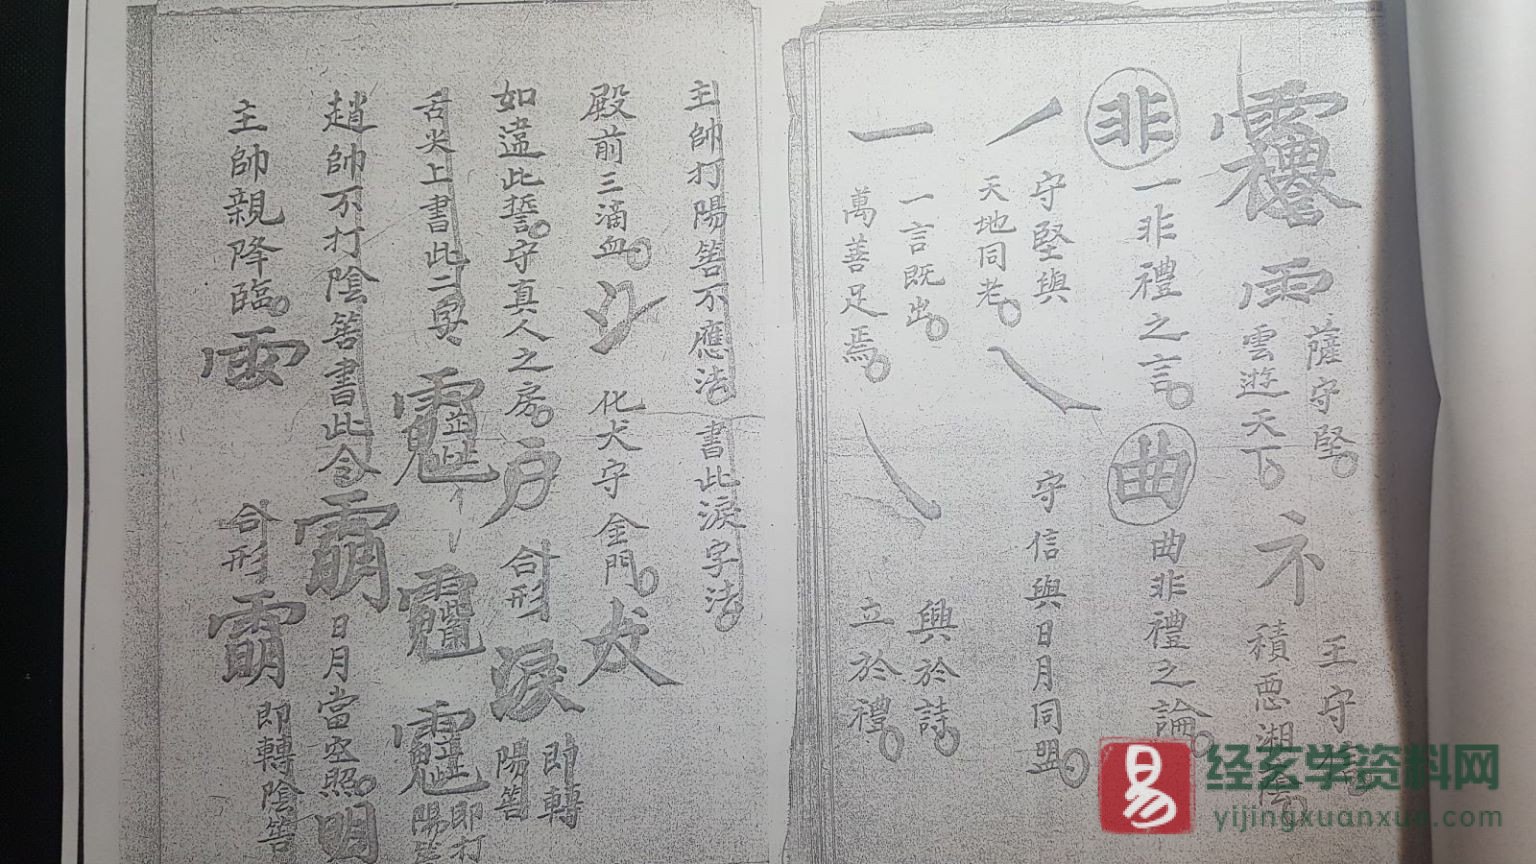 雨
薩守堅
雲遊天下
王守
礻
積惡湘陰
非
一非禮之言
曲
曲非禮之論
丿
守堅與
天地同老
守信與日月同盟
一
一言既出
萬善足焉
興於詩
立於禮
主帥打陽筶不應法書此淚字法
殿前三滴血
氵
化犬守金門
犬
如違此誓守真人之房
戶
合形
淚
即轉
陽筶
舌尖上書此二字
即打
陽筶
趙帥不打陰筶書此令
日月當空照
明
主帥親降臨
合形
即轉陰筶
经玄学资料网
yijingxuanxue.com
易